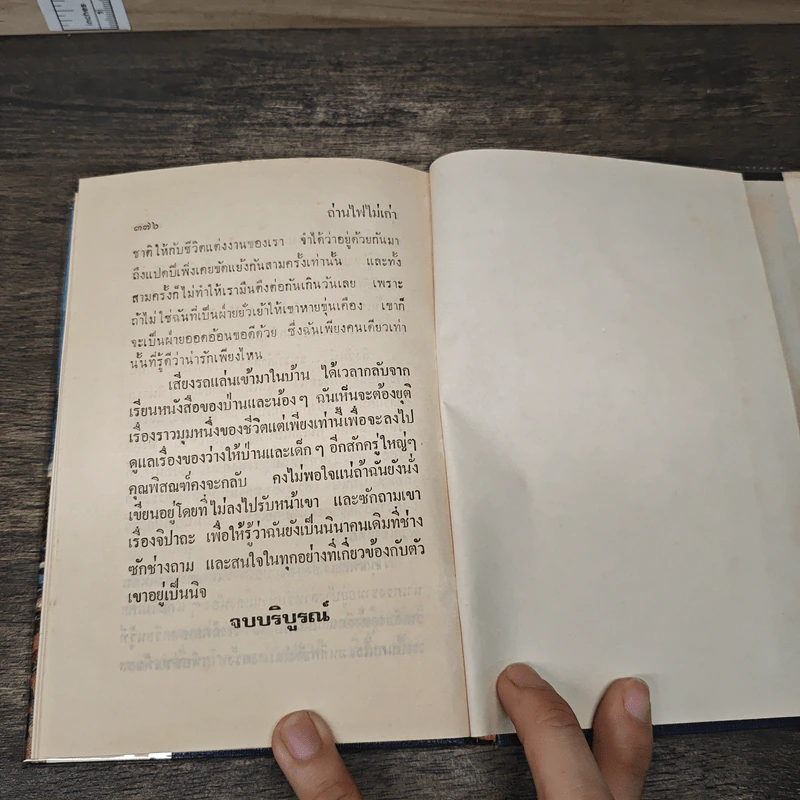 inches 1
๓๗๖ ถ่านไฟไม่เก่า
ชาติให้กับชีวิตแต่งงานของเรา จำได้ว่าอยู่ด้วยกันมา
ถึงแปดปีเพิ่งเคยขัดแย้งกันสามครั้งเท่านั้น และทั้ง
สามครั้งก็ไม่ทำให้เรามึนตึงต่อกันเกินวันเลย เพราะ
ถ้าไม่ใช่ฉันที่เป็นฝ่ายยั่วเย้าให้เขาหายขุ่นเคือง เขาก็
จะเป็นฝ่ายออดอ้อนขอดีด้วย ซึ่งฉันเพียงคนเดียวเท่า
นั้นที่รู้ดีว่าน่ารักเพียงไหน
เสียงรถแล่นเข้ามาในบ้าน ได้เวลากลับจาก
เรียนหนังสือของป่านและน้องๆ ฉันเห็นจะต้องยุติ
เรื่องราวมุมหนึ่งของชีวิตแต่เพียงเท่านี้เพื่อจะลงไป
ดูแลเรื่องของว่างให้ป่านและเด็กๆ อีกสักครู่ใหญ่ๆ
คุณพิสณฑ์คงจะกลับ คงไม่พอใจแน่ถ้าฉันยังนั่ง
เขียนอยู่โดยที่ไม่ลงไปรับหน้าเขา และซักถามเขา
เรื่องจิปาถะ เพื่อให้รู้ว่าฉันยังเป็นนินาคนเดิมที่ช่าง
ซักช่างถาม และสนใจในทุกอย่างที่เกี่ยวข้องกับตัว
เขาอยู่เป็นนิจ
จบบริบูรณ์